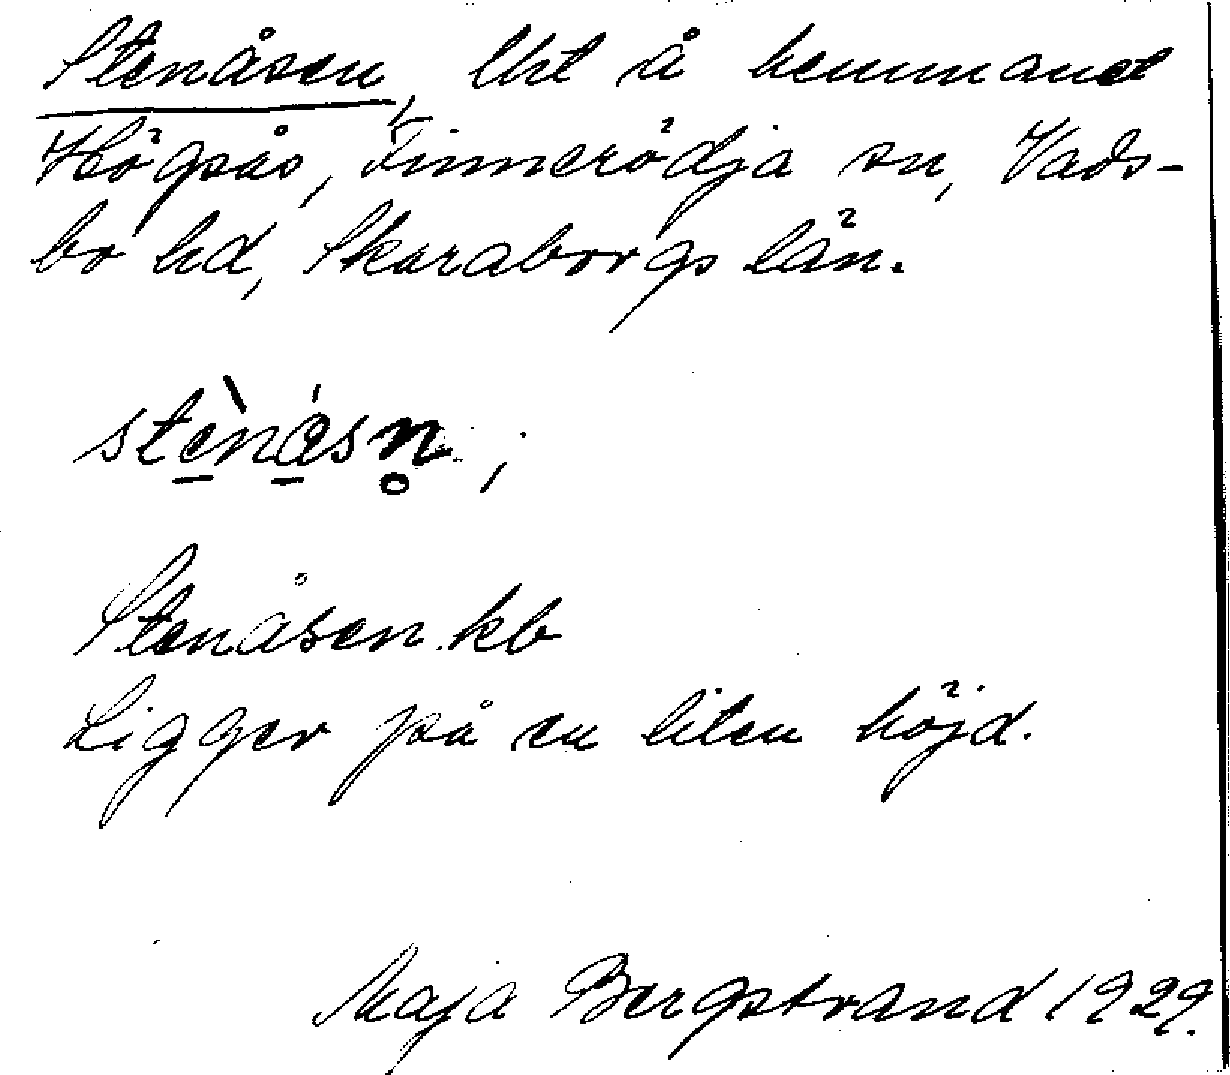 Stenåsen, lht å hemmanet
Högsås, Finnerödja sn, Vads-
bo hd, Skaraborgs län.
Stenåsen kb
Ligger på en liten höjd.
Maja Bergstrand 1929.